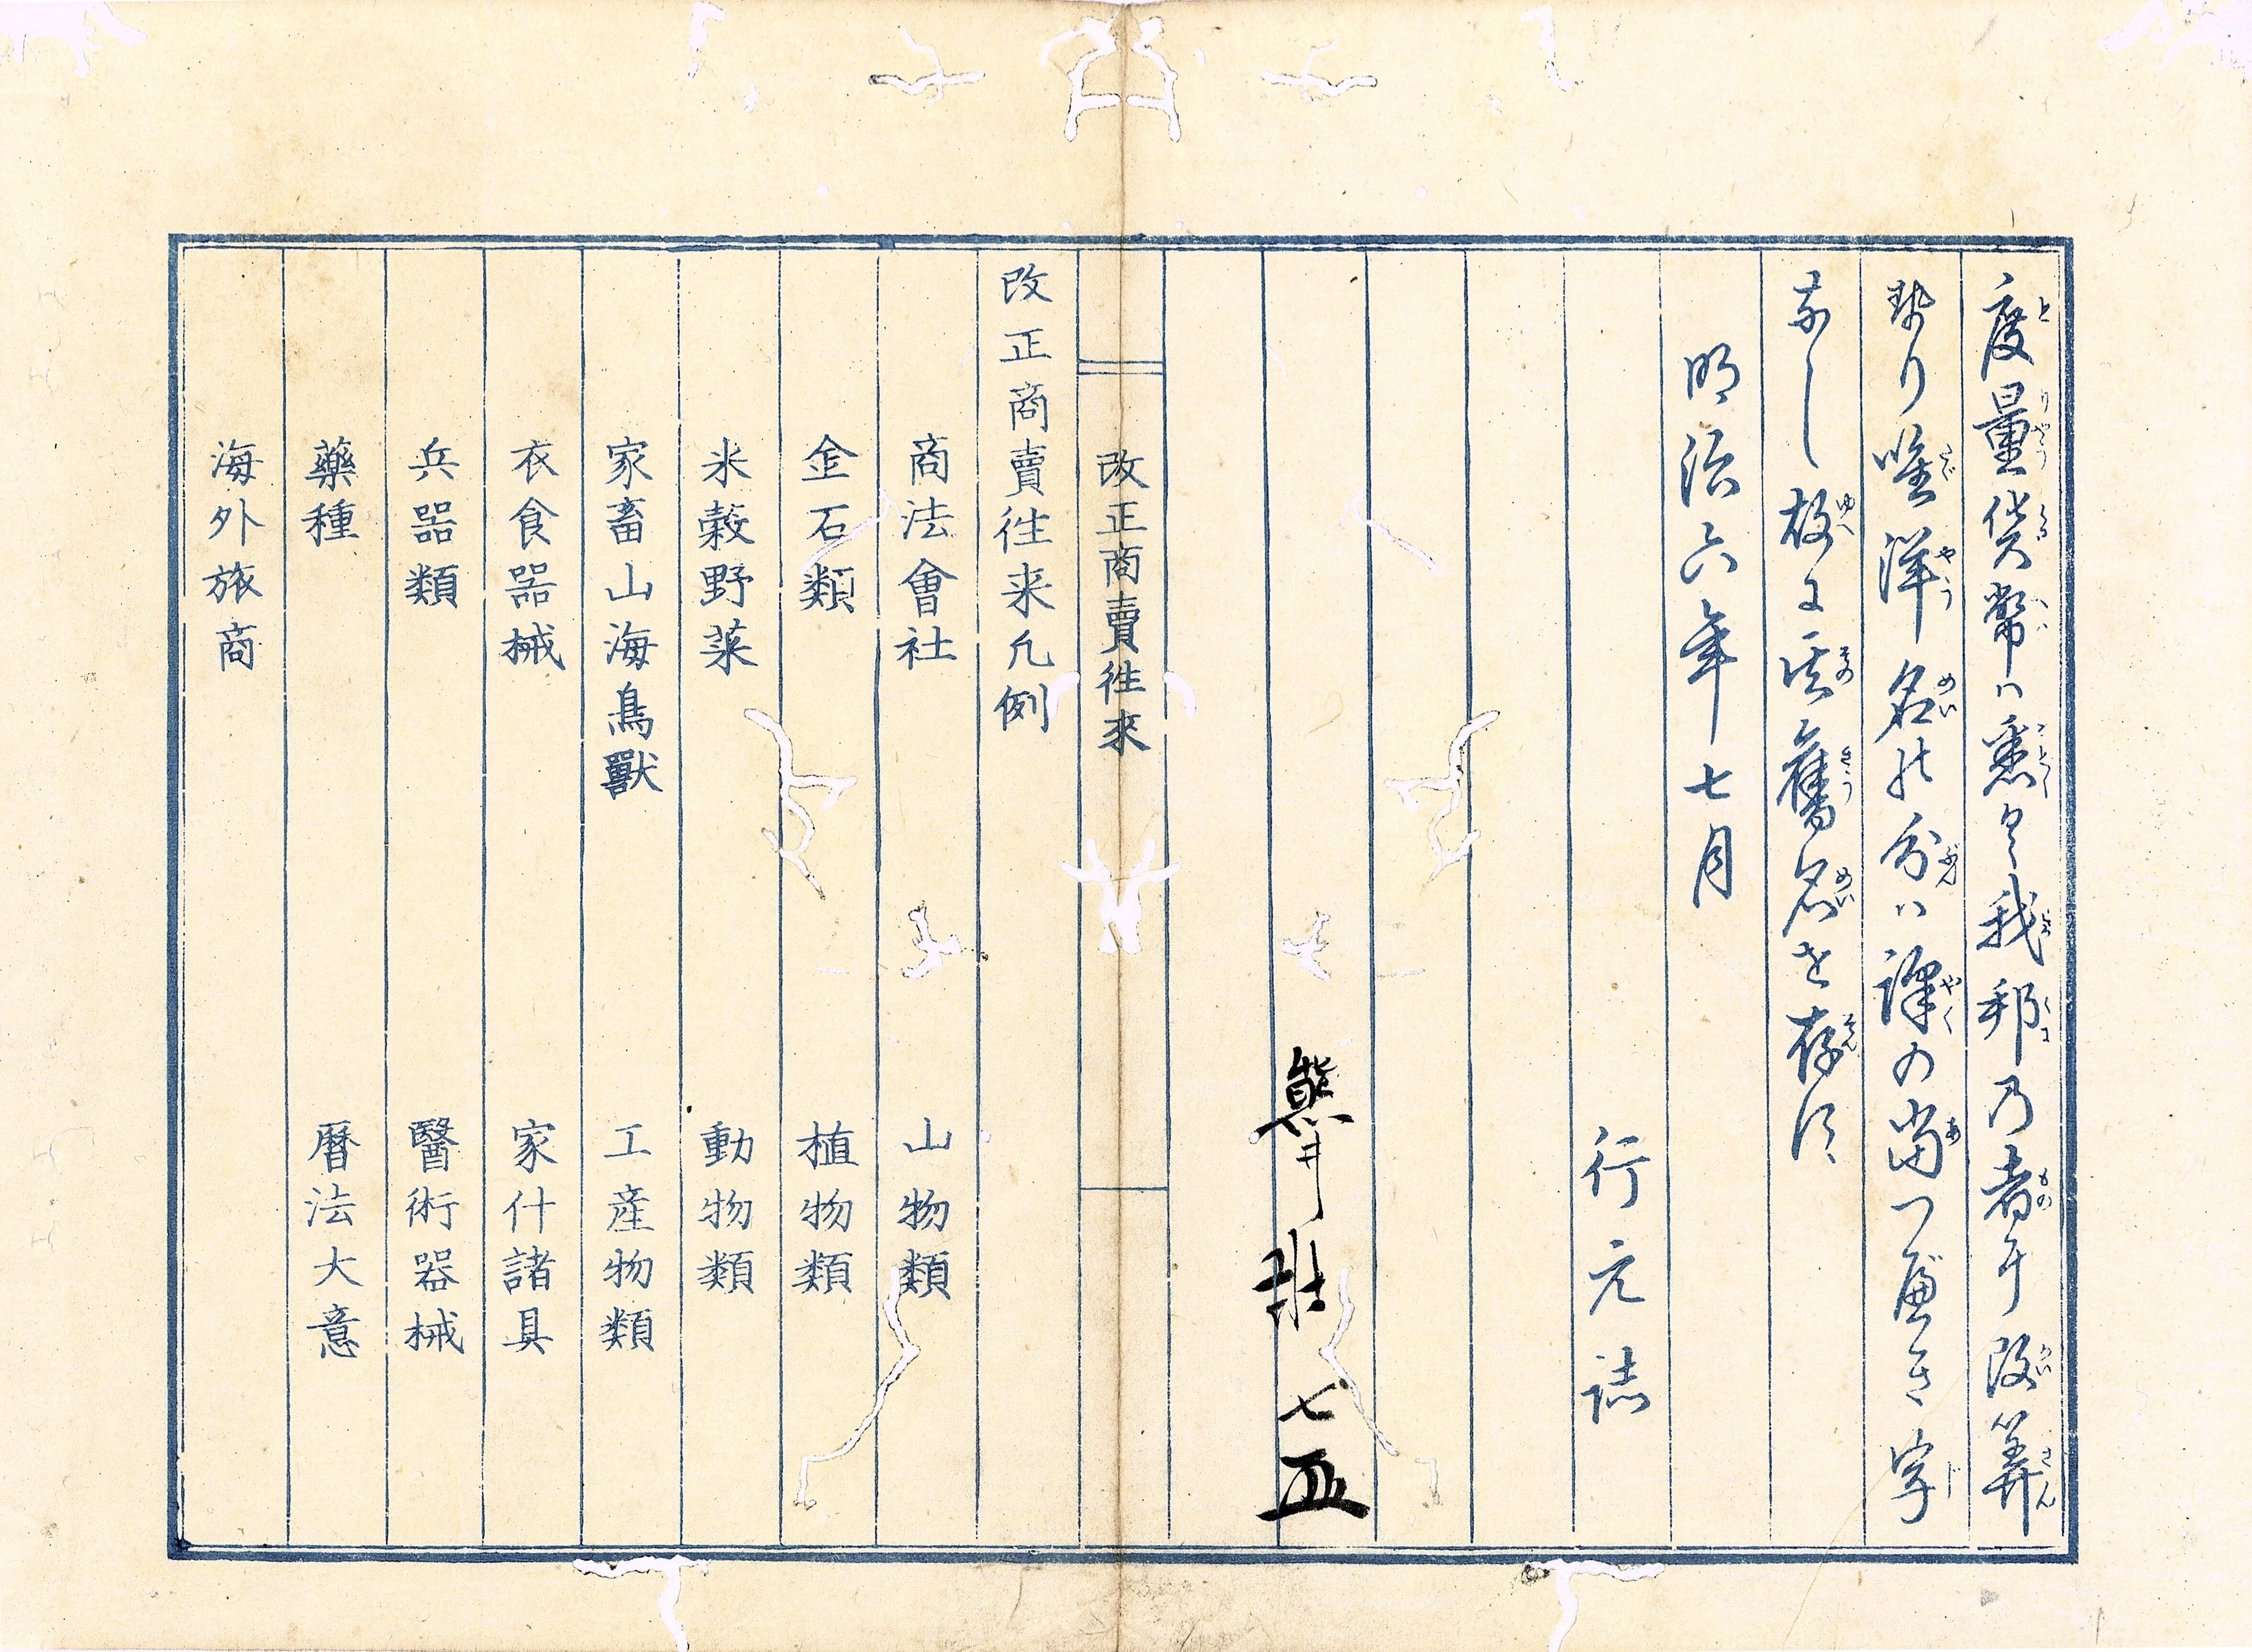 度量貨幣ハ悉く我邦乃者に改算
せり唯洋名の分ハ譯の當つべき字
なし故に其舊名を存す
明治六年七月
行元誌
熊井
改正商賣徃來
改正商賣徃来凡例
商法會社 山物類
金石類 植物類
米穀野菜 動物類
家畜山海鳥獸 工産物類
衣食噐械 家什諸具
兵噐類 醫術器械
藥種 暦法大意
海外旅商